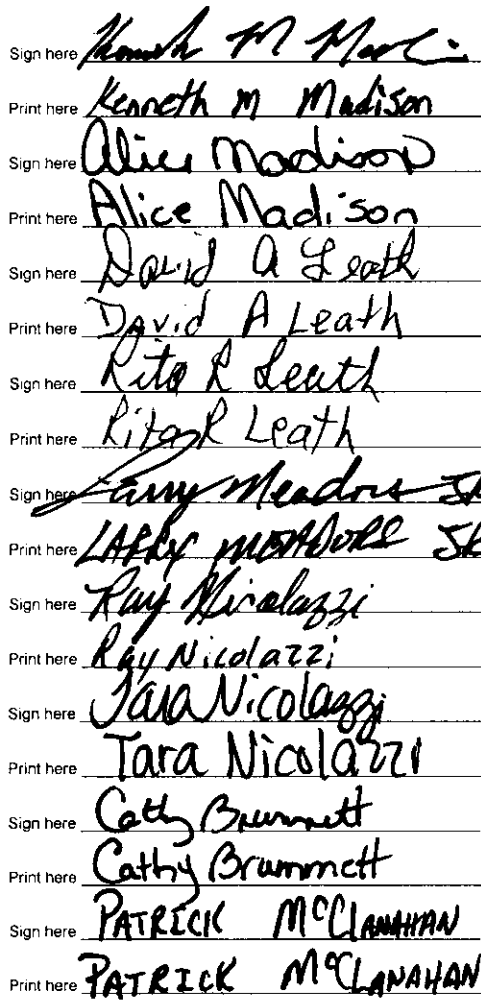 Sign here Kenneth M Madison
Print here Kenneth M Madison
Sign here Alice Madison
Print here Alice Madison
Sign here David A Leath
Print here David A Leath
Sign here Rita R Leath
Print here Rita R Leath
Sign here Larry Meadors JR
Print here LARRY MEADORS JR
Sign here Ray Nicolazzi
Print here Ray Nicolazzi
Sign here Tara Nicolazzi
Print here Tara Nicolazzi
Sign here Cathy Brummett
Print here Cathy Brummett
Sign here PATRICK McCLANAHAN
Print here PATRICK McCLANAHAN